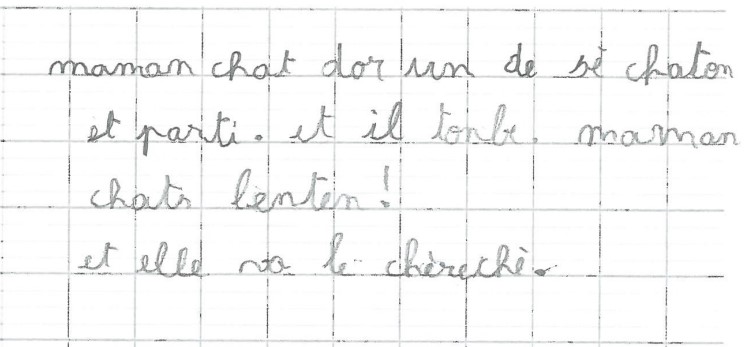 maman chat dor un de sè chaton
et parti. et il tonbe. maman
chats lenten!
et elle va le chèrechè.